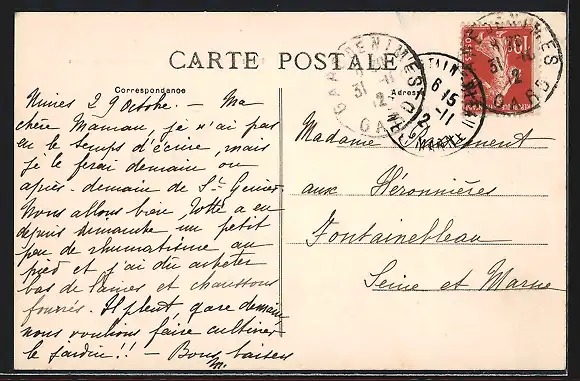 CARTE POSTALE
Correspondance
Adresse
Nimes 29 Octobre. — Ma
chère Maman, je n'ai pas
eu le temps d'écrire, mais
je le ferai demain ou
après-demain de St Geniès.
Nous allons bien, Totté a eu
depuis dimanche un petit
peu de rhumatisme au
pied et j'ai dû acheter
bas de laines et chaussons
fourrés. Il pleut, gare demain,
nous voulions faire cultiver
le jardin!! — Bons baisers
M.
Madame
aux Héronnières
Fontainebleau
Seine et Marne
GARE DE NIMES
31
12
GARD
6 15
2-11
MARNE
10